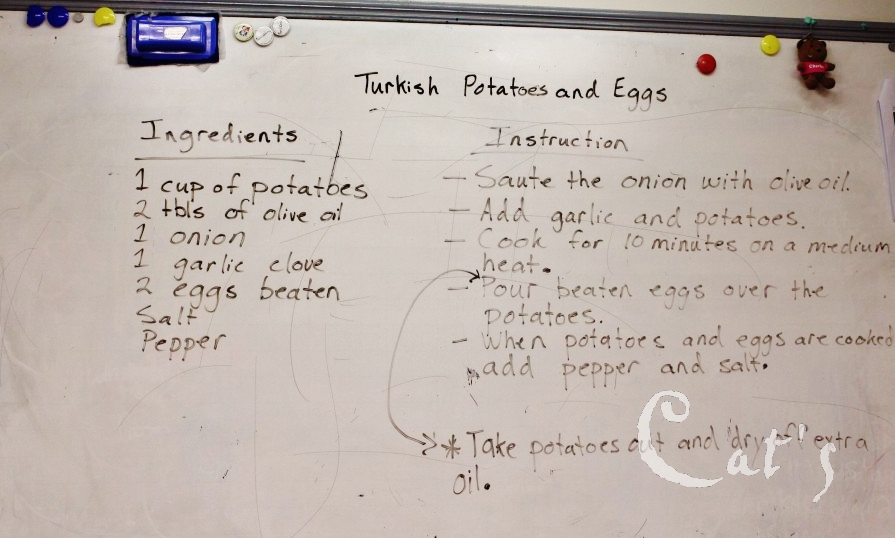 Turkish Potatoes and Eggs
Ingredients
1 cup of potatoes
2 tbls of olive oil
1 onion
1 garlic clove
2 eggs beaten
Salt
Pepper
Instruction
- Saute the onion with olive oil.
- Add garlic and potatoes.
- Cook for 10 minutes on a medium
heat.
- Pour beaten eggs over the
potatoes.
- When potatoes and eggs are cooked
add pepper and salt.
* Take potatoes out and "dry off" extra
oil.
Cat's